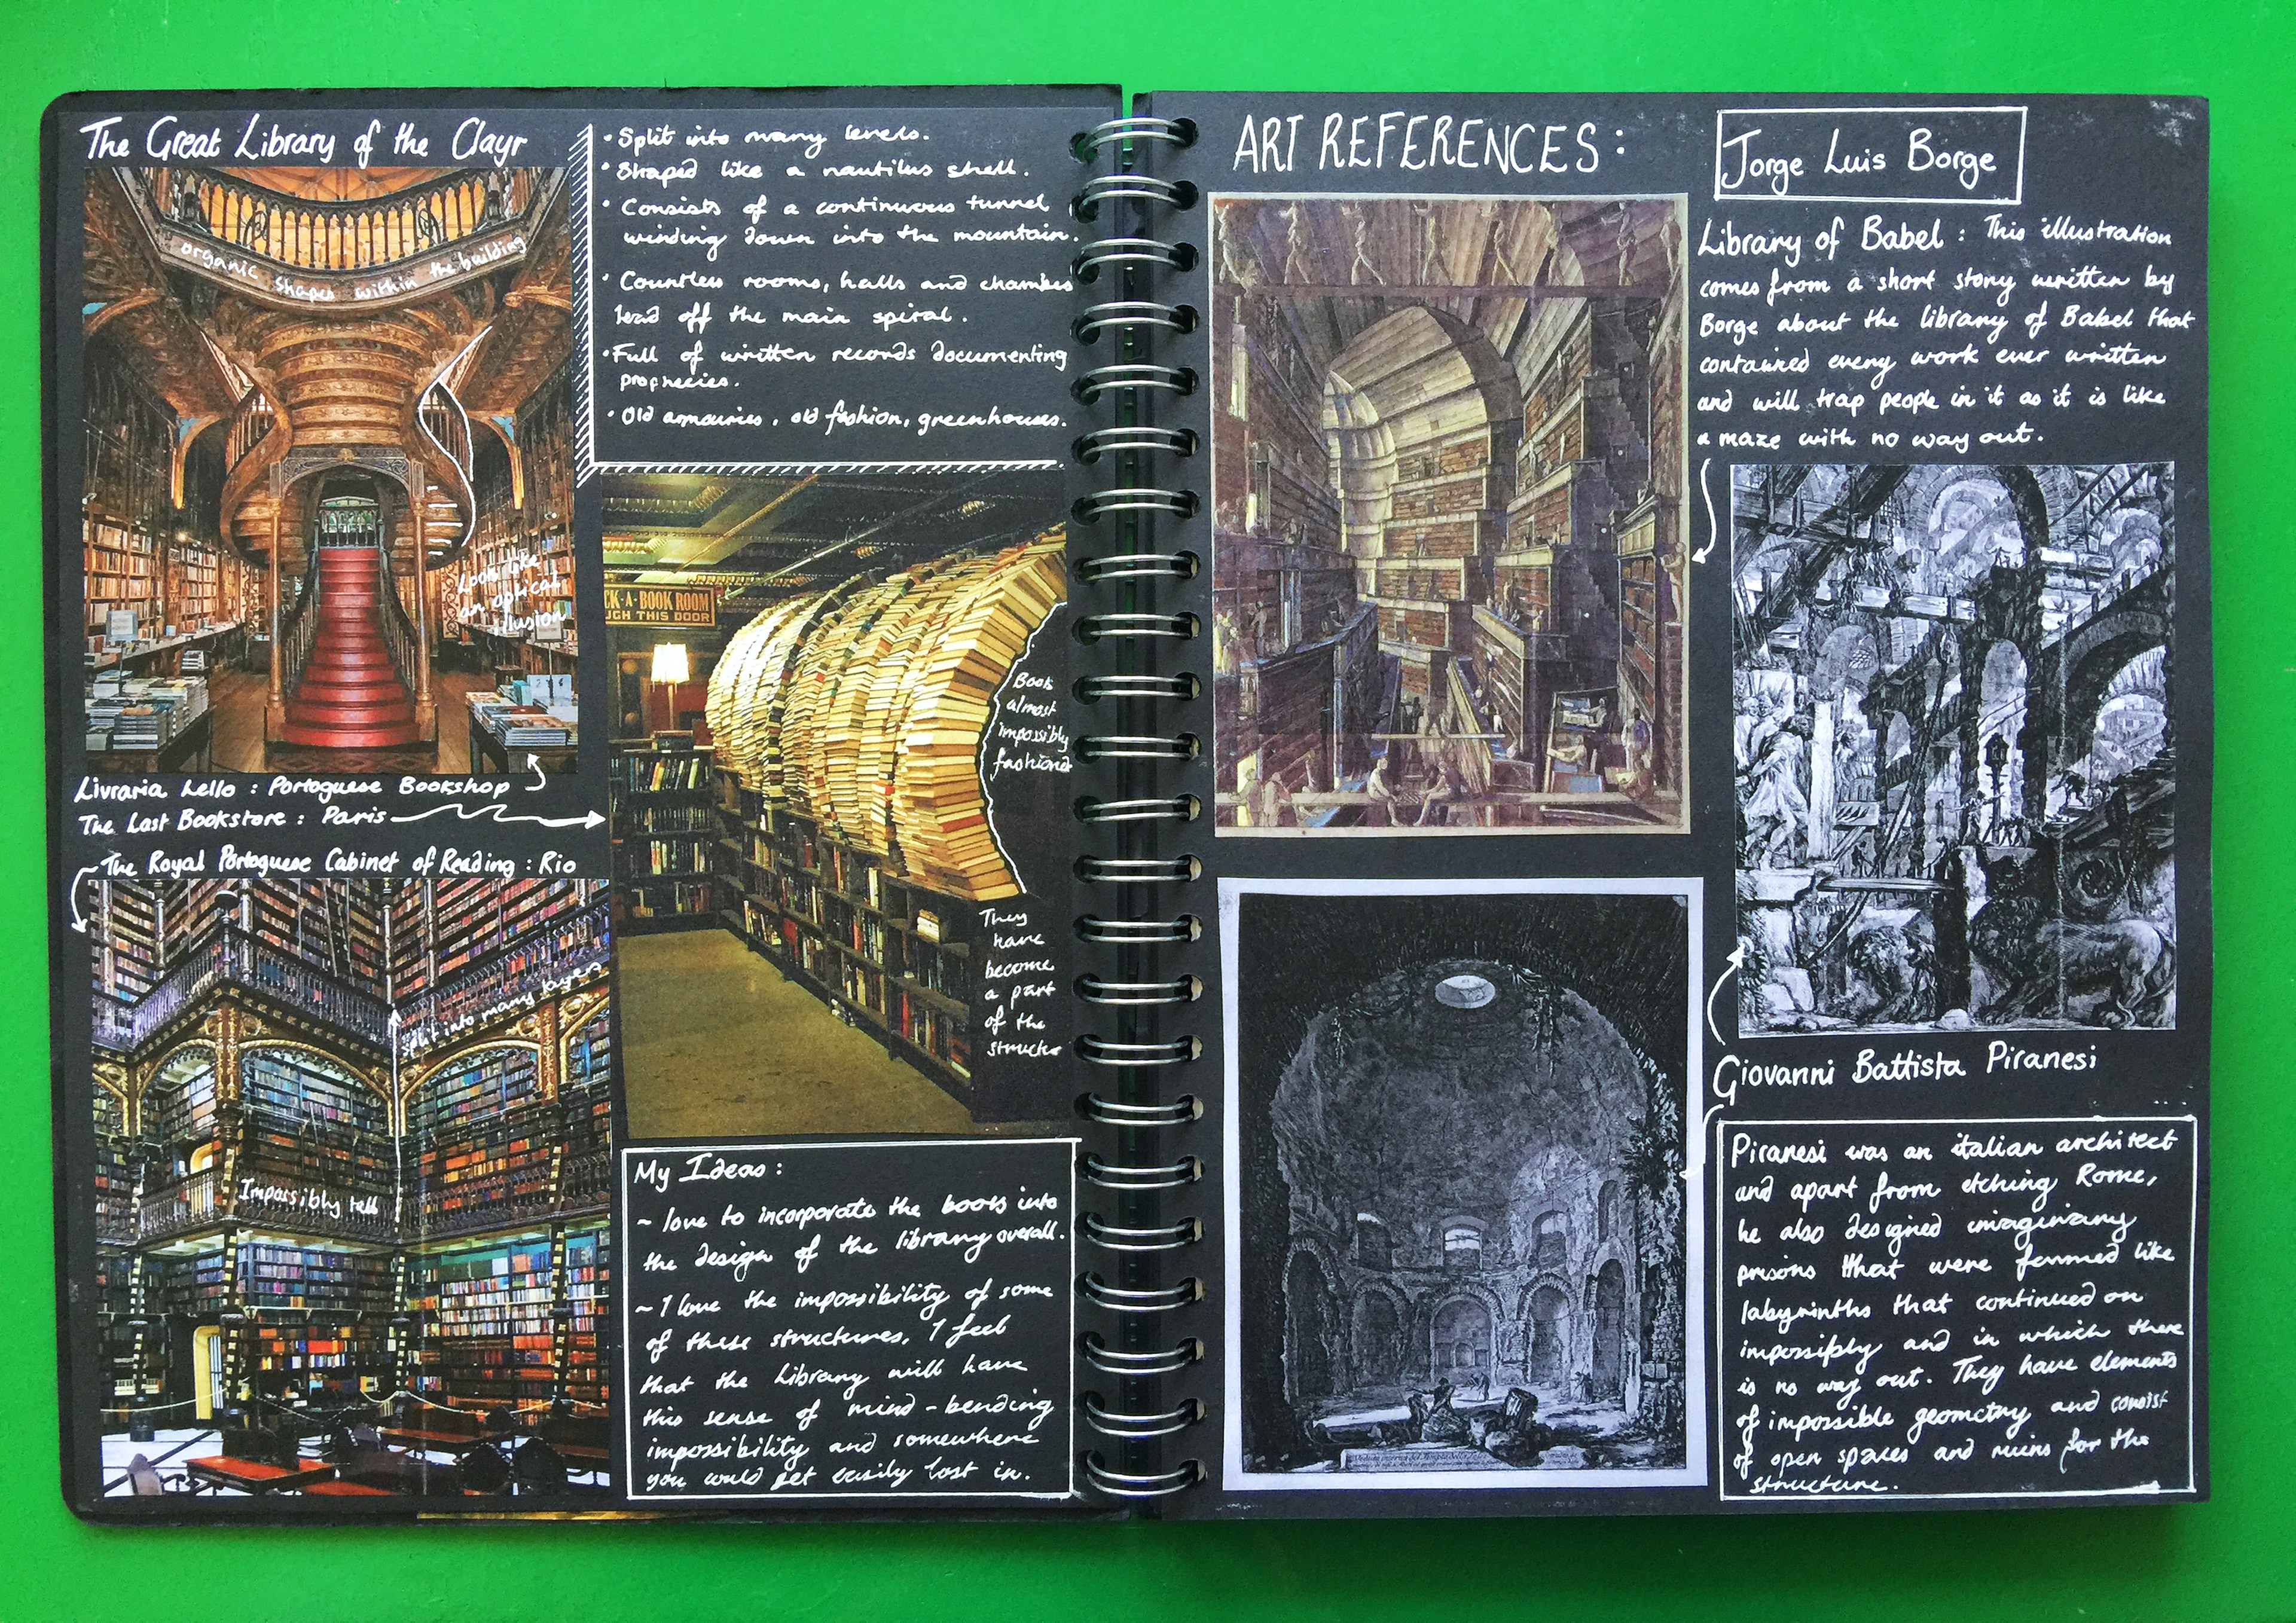 The Great Library of the Clayr
organic shapes within the building
Look like
an optical
illusion
Livraria Lello : Portoguese Bookshop
The Last Bookstore : Paris
The Royal Portoguese Cabinet of Reading : Rio
Split into many layers
Impossibly tall
• Split into many levels.
• Shaped like a nautilus shell.
• Consists of a continuous tunnel
winding down into the mountain.
• Countless rooms, halls and chambers
lead off the main spiral.
• Full of written records documenting
prophecies.
• Old armouries, old fashion, greenhouses.
CK-A-BOOK ROOM
UGH THIS DOOR
Books
almost
impossibly
fashioned
They
have
become
a part
of the
My Ideas :
~ love to incorporate the books into
the design of the library overall.
~ I love the impossibility of some
of these structures. I feel
that the library will have
this sense of mind-bending
impossibility and somewhere
you would get easily lost in.
ART REFERENCES :
Jorge Luis Borge
Library of Babel : This illustration
comes from a short story written by
Borge about the library of Babel that
contained every work ever written
and will trap people in it as it is like
a maze with no way out.
Giovanni Battista Piranesi
Piranesi was an italian architect
and apart from etching Rome,
he also designed imaginary
prisons that were formed like
labyrinths that continued on
impossibly and in which there
is no way out. They have elements
of impossible geometry and consist
of open spaces and ruins for the
structure.